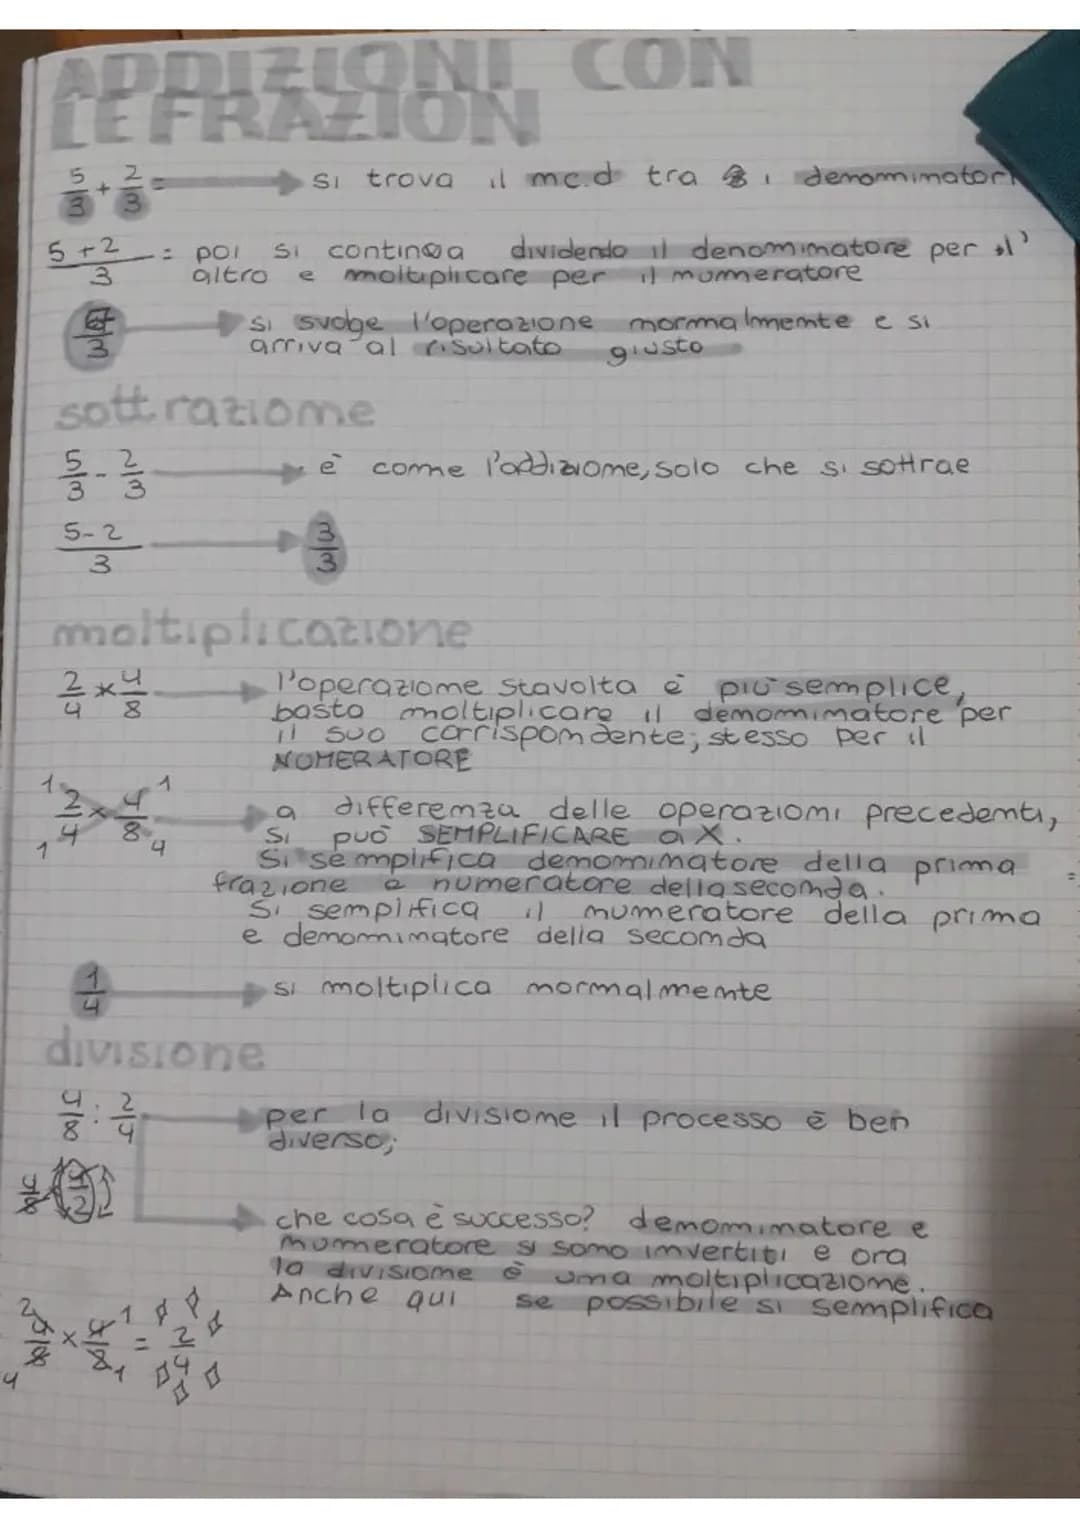 ADDIZIONI CON
LE FRAZION
5/3 + 2/3 = si trova il mc.d tra i denomminatori
5+2/3 = poi si continua dividendo il denomimatore per l'
altro e moltiplicare per il mumeratore
7/3 si svolge l'operazione mormalmemte e si
arriva al risultato giusto
sottraziome
5/3 - 2/3 è come l'addiziome, solo che si sottrae
5-2/3 3/3
moltiplicazione
2/4 × 4/8 l'operaziome stavolta è più semplice,
basta moltiplicare il demomimatore per
il suo corrispomdente; stesso per il
NUMERATORE
1 2/4 × 4/8 1 a differemza delle operaziomi precedemti,
1 4 si può SEMPLIFICARE a X.
Si semplifica demomimatore della prima
frazione e numeratore della secomda.
Si semplifica il mumeratore della prima
e demommimatore della secomda
1/4 si moltiplica mormalmemte
divisione
4/8 : 2/4 per la divisiome il processo è ben
diverso;
4/8 × 4/2
che cosa è successo? demomimatore e
mumeratore si somo imvertiti e ora
la divisiome è uma moltiplicaziome.
Anche qui se possibile si semmplifica
2 4/8 × 4/8 1 = 2/4
4 1